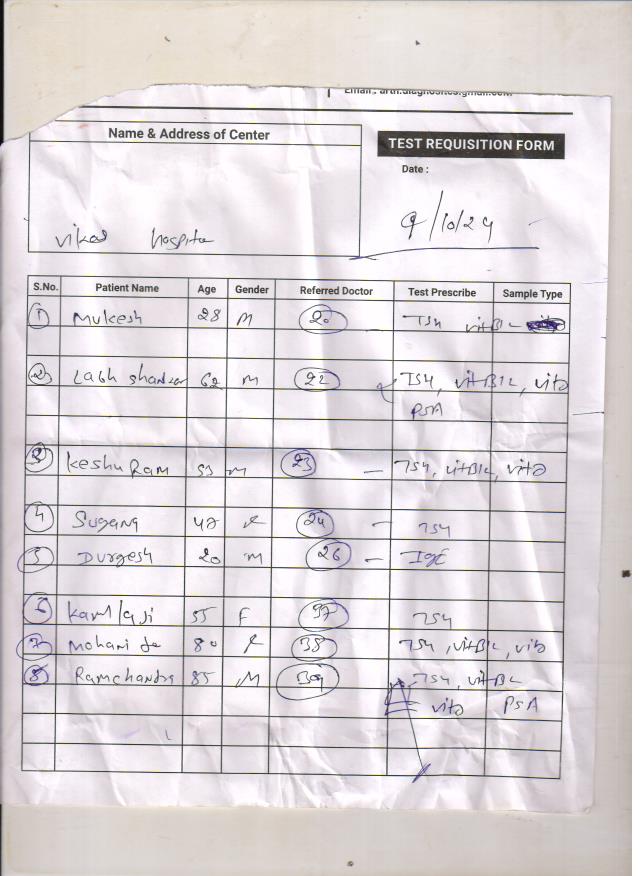 Name & Address of Center
TEST REQUISITION FORM
Date :
9/10/24
Vikas Hospital
S.No. Patient Name Age Gender Referred Doctor Test Prescribe Sample Type
1 Mukesh 28 M 20 - TSH vitB12
2 Labh Shankar 62 M 22 TSH, vitB12, vitD
PSA
3 Keshu Ram 53 M 23 - TSH, vitB12, vitD
4 Sugana 47 F 24 - TSH
5 Durgesh 20 M 26 - IgE
6 55 F 37 TSH
7 Mohani 80 F 38 TSH, vitB12, vitD
8 Ramchandra 85 M 39 TSH, vitB12
vitD PSA